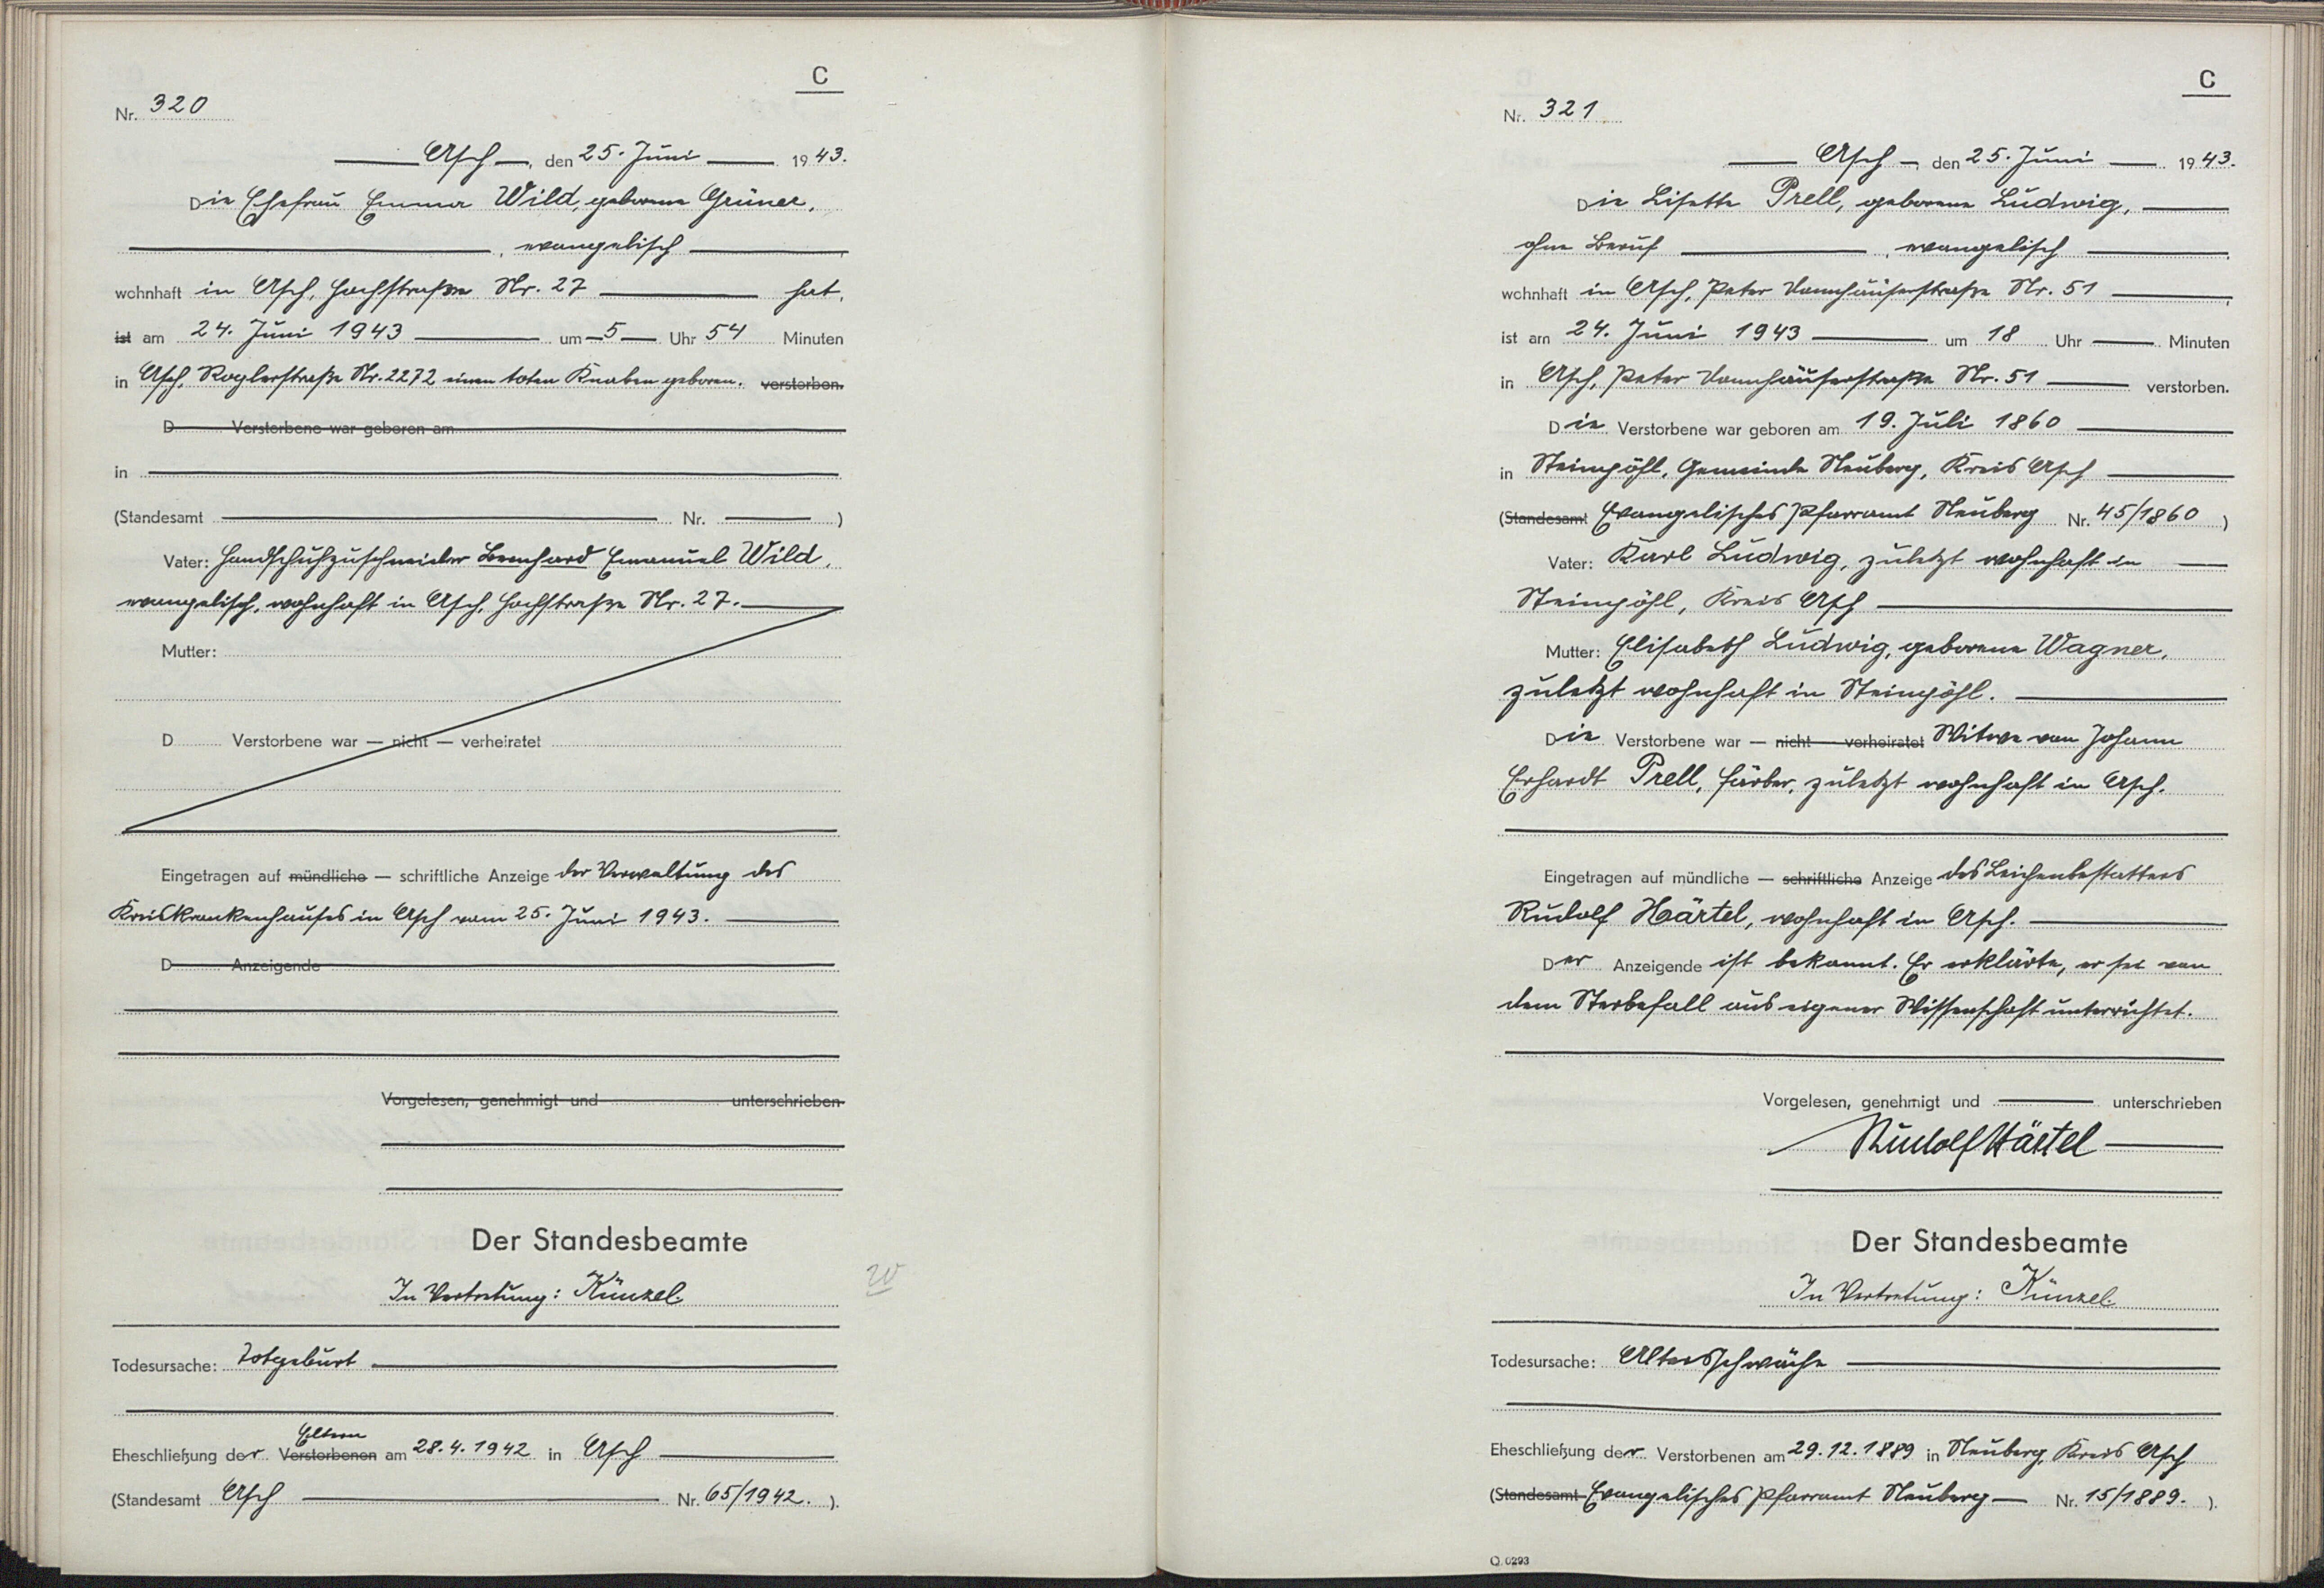 C
Nr. 320
Asch, den 25. Juni 1943.
Die Ehefrau Emma Wild, geborene Grüner,
, evangelisch
wohnhaft in Asch, Hochstraße Nr. 27 hat,
ist am 24. Juni 1943 um 5 Uhr 54 Minuten
in Asch, Roglerstraße Nr. 2272 einen toten Knaben geboren. verstorben.
D Verstorbene war geboren am
in
(Standesamt Nr. )
Vater: Handschuhzuschneider Bernhard Emanuel Wild,
evangelisch, wohnhaft in Asch, Hochstraße Nr. 27.
Mutter:
D Verstorbene war — nicht — verheiratet
Eingetragen auf mündliche — schriftliche Anzeige der Verwaltung des
Kreiskrankenhauses in Asch vom 25. Juni 1943.
D Anzeigende
Vorgelesen, genehmigt und unterschrieben
Der Standesbeamte
In Vertretung: Künzel.
Todesursache: Totgeburt
Eltern
Eheschließung der Verstorbenen am 28.4.1942 in Asch
(Standesamt Asch Nr. 65/1942. ).
C
Nr. 321
Asch, den 25. Juni 1943.
Die Lisette Prell, geborene Ludwig,
ohne Beruf , evangelisch
wohnhaft in Asch, Peter Donnhäuserstraße Nr. 51,
ist am 24. Juni 1943 um 18 Uhr Minuten
in Asch, Peter Donnhäuserstraße Nr. 51 verstorben.
Die Verstorbene war geboren am 19. Juli 1860
in Steinpöhl, Gemeinde Neuberg, Kreis Asch
(Standesamt Evangelisches Pfarramt Neuberg Nr. 45/1860 )
Vater: Karl Ludwig, zuletzt wohnhaft in
Steinpöhl, Kreis Asch
Mutter: Elisabeth Ludwig, geborene Wagner,
zuletzt wohnhaft in Steinpöhl.
Die Verstorbene war — nicht — verheiratet Witwe von Johann
Erhardt Prell, Färber, zuletzt wohnhaft in Asch.
Eingetragen auf mündliche — schriftliche Anzeige des Leichenbestatters
Rudolf Härtel, wohnhaft in Asch.
Der Anzeigende ist bekannt. Er erklärte, er sei von
dem Sterbefall aus eigener Wissenschaft unterrichtet.
Vorgelesen, genehmigt und unterschrieben
Rudolf Härtel
Der Standesbeamte
In Vertretung: Künzel.
Todesursache: Altersschwäche
Eheschließung der Verstorbenen am 29.12.1889 in Neuberg, Kreis Asch
(Standesamt Evangelisches Pfarramt Neuberg Nr. 15/1889. ).
Q. 0293